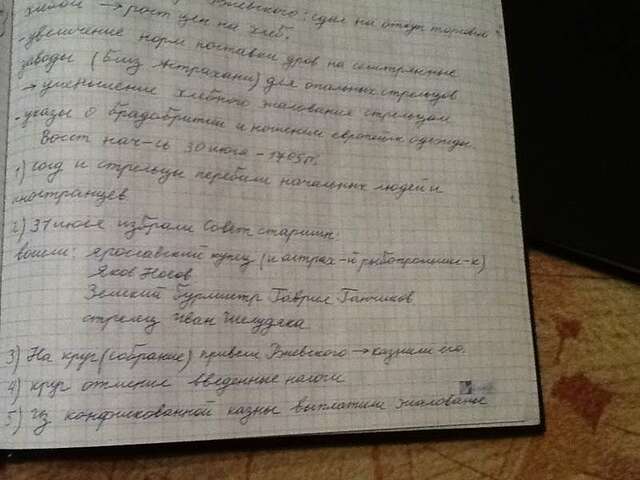 → рост цен на хлеб. Ржевского: сдал на откуп торговлю
- увеличение норм поставки дров на селитряные
заводы (близ Астрахани) для опальных стрельцов
→ уменьшение хлебного жалования стрельцам
- указы о брадобритии и ношении европейск одежды.
Восст нач-сь 30 июля - 1705 г.
1) солд и стрельцы перебили начальных людей и
иностранцев
2) 31 июля избрали Совет старшин:
вошли: ярославский купец (и астрах-й рыбопромышл-к)
Яков Носов
Земский бурмистр Гаврил Ганчиков
стрелец Иван Шелудяка
3) На круг (собрание) привели Ржевского → казнили его.
4) круг отменил введенные налоги
5) Из конфискованной казны выплатили жалованье